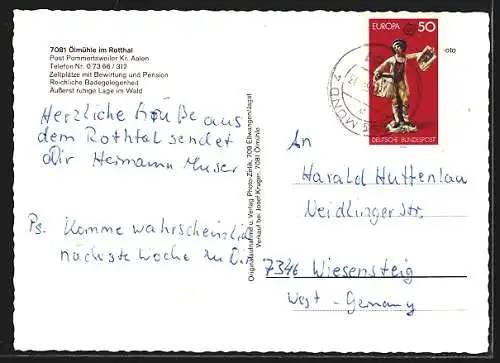 7081 Ölmühle im Rotthal
Post Pommertsweiler Kr. Aalen
Telefon Nr. 0 73 66 / 312
Zeltplätze mit Bewirtung und Pension
Reichliche Badegelegenheit
Äußerst ruhige Lage im Wald
Herzliche Grüße aus
dem Rothtal sendet
Dir Hermann Muser
Ps. Komme wahrscheinlich
nächste Woche zu Dir
Originalaufnahme u. Verlag Photo-Zirlik, 709 Ellwangen/Jagst
Verkauf bei Josef Krager, 7081 Ölmühle
EUROPA 50
DEUTSCHE BUNDESPOST
MÜND
oto
An
Harald Huttenlau
Neidlinger Str.
7346 Wiesensteig
West-Germany